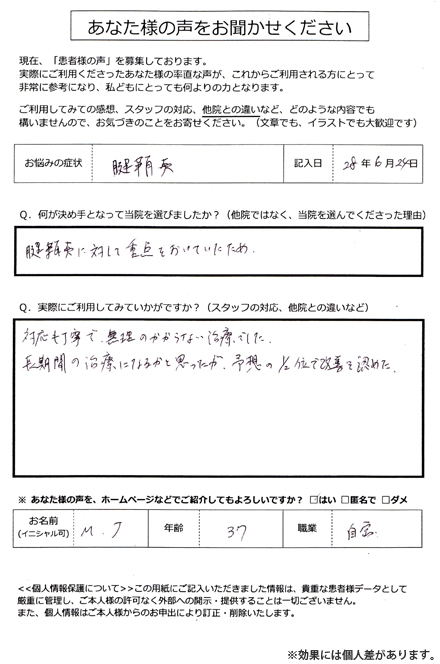 あなた様の声をお聞かせください
現在、「患者様の声」を募集しております。
実際にご利用くださったあなた様の率直な声が、これからご利用される方にとって
非常に参考になり、私どもにとっても何よりの力となります。
ご利用してみての感想、スタッフの対応、他院との違いなど、どのような内容でも
構いませんので、お気づきのことをお寄せください。（文章でも、イラストでも大歓迎です）
お悩みの症状 腱鞘炎 記入日 28年6月24日
Q．何が決め手となって当院を選びましたか？（他院ではなく、当院を選んでくださった理由）
腱鞘炎に対して重点をおいていたため．
Q．実際にご利用してみていかがですか？（スタッフの対応、他院との違いなど）
対応も丁寧で、無理のかからない治療でした．
長期間の治療になるかと思ったが、予想の 位で改善を認めた．
※ あなた様の声を、ホームページなどでご紹介してもよろしいですか？ ☑はい □匿名で □ダメ
お名前 (イニシャル可) M．T 年齢 37 職業 自営
<<個人情報保護について>>この用紙にご記入いただきました情報は、貴重な患者様データとして
厳重に管理し、ご本人様の許可なく外部への開示・提供することは一切ございません。
また、個人情報はご本人様からのお申出により訂正・削除いたします。
※効果には個人差があります。